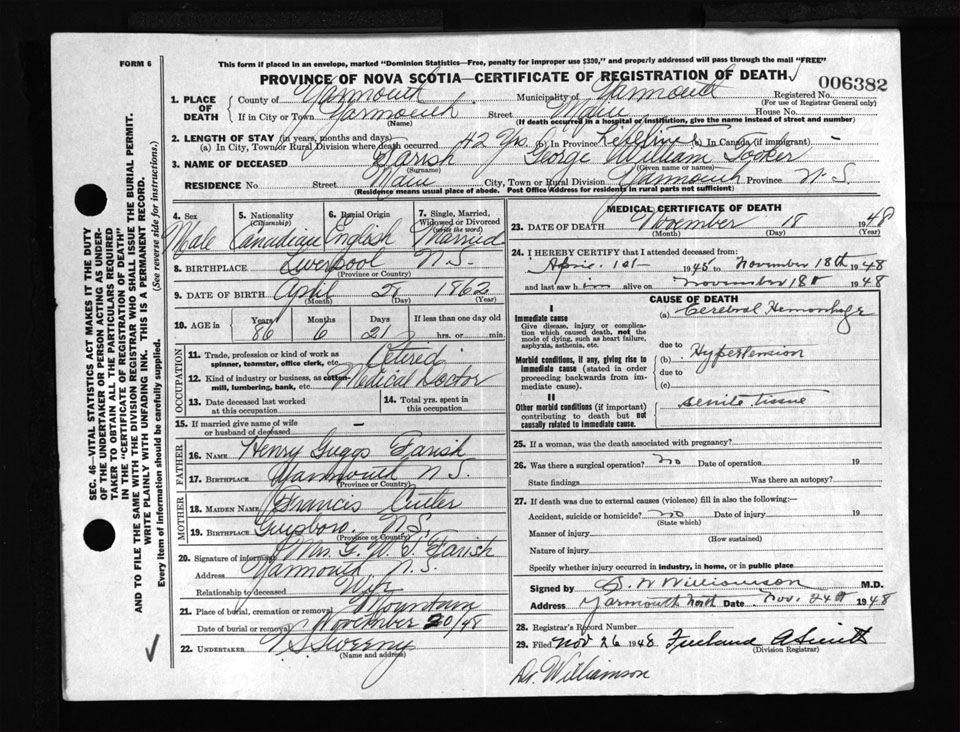 FORM 6
This form if placed in an envelope, marked "Dominion Statistics—Free, penalty for improper use $300," and properly addressed will pass through the mail "FREE"
PROVINCE OF NOVA SCOTIA—CERTIFICATE OF REGISTRATION OF DEATH
006382
1. PLACE OF DEATH
County of Yarmouth Municipality of Yarmouth Registered No.
(For use of Registrar General only)
If in City or Town Yarmouth Street Main House No.
(Name) (If death occurred in a hospital or institution, give the name instead of street and number)
2. LENGTH OF STAY (in years, months and days)
(a) In City, Town or Rural Division where death occurred 42 Yrs. (b) In Province Lifetime (c) In Canada (if immigrant) —
3. NAME OF DECEASED Farish George William Tooker
(Surname) (Given name or names)
RESIDENCE No. Street Main City, Town or Rural Division Yarmouth Province N.S.
(Residence means usual place of abode. Post Office Address for residents in rural parts not sufficient)
4. Sex 5. Nationality (Citizenship) 6. Racial Origin 7. Single, Married, Widowed or Divorced (write the word)
Male Canadian English Married
8. BIRTHPLACE Liverpool N.S.
(Province or Country)
9. DATE OF BIRTH April 1862
(Month) (Day) (Year)
10. AGE in Years Months Days If less than one day old
86 6 21 hrs. or min.
OCCUPATION
11. Trade, profession or kind of work as spinner, teamster, office clerk, etc. Retired
12. Kind of industry or business, as cotton-mill, lumbering, bank, etc. Medical Doctor
13. Date deceased last worked at this occupation
14. Total yrs. spent in this occupation
15. If married give name of wife or husband of deceased —
FATHER
16. NAME Henry Farish
17. BIRTHPLACE Yarmouth N.S.
(Province or Country)
MOTHER
18. MAIDEN NAME Francis Cutler
19. BIRTHPLACE Guysboro. N.S.
(Province or Country)
20. Signature of informant Mrs. G. W. T. Farish
Address Yarmouth N.S.
Relationship to deceased Wife
21. Place of burial, cremation or removal Mountain
Date of burial or removal November 20/48
22. UNDERTAKER V S Sweeny
(Name and address)
MEDICAL CERTIFICATE OF DEATH
23. DATE OF DEATH November 18 1948
(Month) (Day) (Year)
24. I HEREBY CERTIFY that I attended deceased from:
April 1st 1945 to November 18th 1948
and last saw him alive on November 18th 1948
CAUSE OF DEATH
I
Immediate cause (a) Cerebral Hemorrhage
Give disease, injury or complication which caused death, not the mode of dying, such as heart failure, asphyxia, asthenia, etc.
due to
Morbid conditions, if any, giving rise to immediate cause (stated in order proceeding backwards from immediate cause). (b) Hypertension
due to
(c)
II
Other morbid conditions (if important) contributing to death but not causally related to immediate cause. senile tissue
25. If a woman, was the death associated with pregnancy?
26. Was there a surgical operation? no Date of operation 19
State findings Was there an autopsy?
27. If death was due to external causes (violence) fill in also the following:—
Accident, suicide or homicide? no Date of injury 19
(State which)
Manner of injury
(How sustained)
Nature of injury
Specify whether injury occurred in industry, in home, or in public place
Signed by S. W Williamson M.D.
Address Yarmouth North Date Nov. 24th 1948
28. Registrar's Record Number
29. Filed Nov 26 1948
(Division Registrar)
Dr. Williamson
SEC. 46—VITAL STATISTICS ACT MAKES IT THE DUTY
OF THE UNDERTAKER OR PERSON ACTING AS UNDER-
TAKER TO OBTAIN ALL THE PARTICULARS REQUIRED
IN THE "CERTIFICATE OF REGISTRATION OF DEATH"
AND TO FILE THE SAME WITH THE DIVISION REGISTRAR WHO SHALL ISSUE THE BURIAL PERMIT.
WRITE PLAINLY WITH UNFADING INK. THIS IS A PERMANENT RECORD.
Every item of information should be carefully supplied. (See reverse side for instructions.)